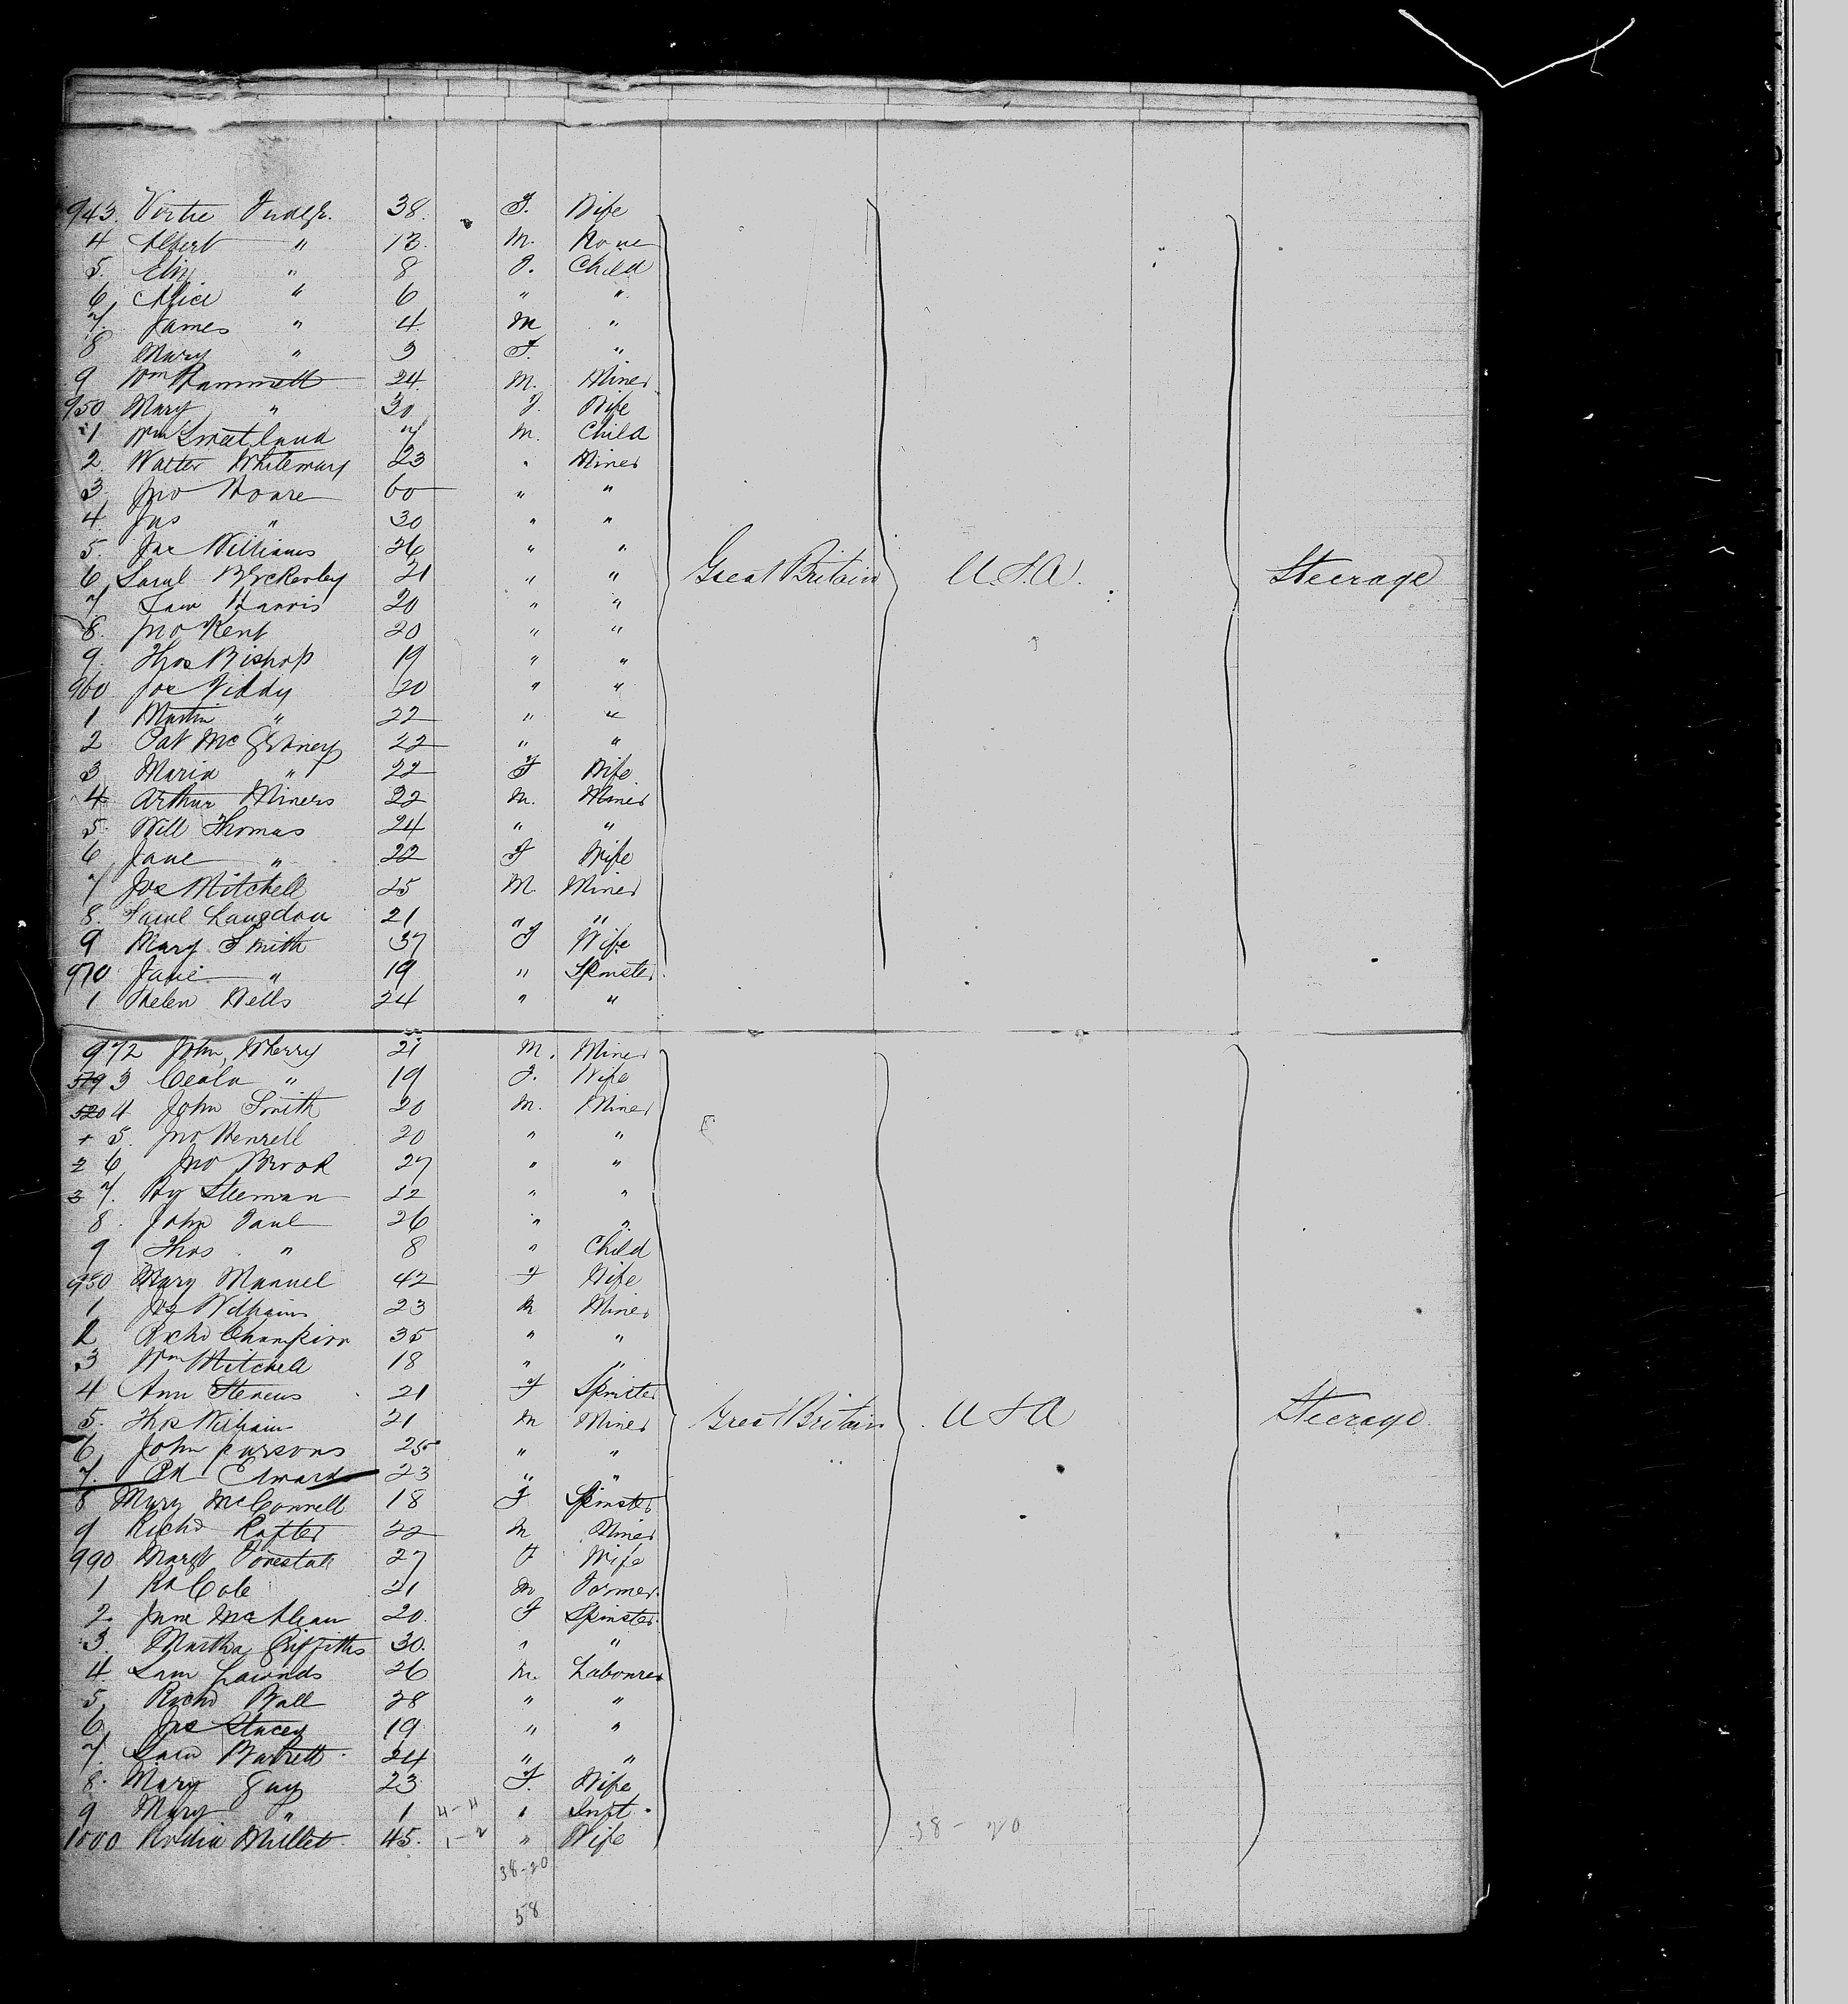 943. 38. F. Wife
4 Albert " 13. M. None
5. Eliz " 8 F. Child
6 Alice " 6 " "
7. James " 4 M "
8 Mary " 3 F. "
9 Wm Hammett 24. M. Miner
950 Mary " 30 F. Wife
1 Wm Sweetland 7 M. Child
2. Walter Whiteway 23 " Miner
3 Jno Hoare 60 " "
4. Jas " 30 " "
5. Jas Williams 26 " "
6 Saml 21 " " Great Britain U.S.A. Steerage
7 Sam Harris 20 " "
8. Jno Kent 20 " "
9. Thos Bishop 19 " "
960 Jos Tiddy 20 " "
1 Martin " 22 " "
2 Pat Mc 22 " "
3 Maria " 22 F Wife
4 Arthur Miners 22 M. Miner
5. Will Thomas 24 " "
6 Jane " 22 F Wife
7 Jos Mitchell 25 M. Miner
8. Saml Langdon 21 " "
9 Mary Smith 37 F Wife
970 Jane " 19 " Spinster
1 Helen Wells 24 " "
972 John Wherry 21 M. Miner
519 3 " 19 F. Wife
520 4 John Smith 20 M. Miner
+ 5. Jno 20 " "
2 6 Jno Brook 27 " "
3 7. Hy Sleeman 22 " "
8. John Paul 26 " "
9 Thos " 8 " Child
980 Mary Manuel 42 F Wife
1 Jos Williams 23 M Miner
2 Richd Champion 35 " "
3 Wm Mitchell 18 " "
4 Ann Stevens 21 F Spinster
5. Thos William 21 M Miner Great Britain U S A Steerage
6 John parsons 25 " "
7. Ed Edwards 23 " "
8 Mary McConnell 18 F Spinster
9 Richd Rafter 22 M Miner
990 Margt 27 F Wife
1 Rd Cole 21 M Farmer
2. Jane 20. F Spinster
3. Martha Griffiths 30. " "
4 Sam Lownds 26 M. Labourer
5. Richd Ball 28 " "
6 Jas Stacey 19 " "
7. Sam Barrett 24 " "
8. Mary Guy 23 F. Wife
9 Mary " 1 4-4 " Inft.
1000 Millet 45. 1-2 " Wife 38-20
38-20
58